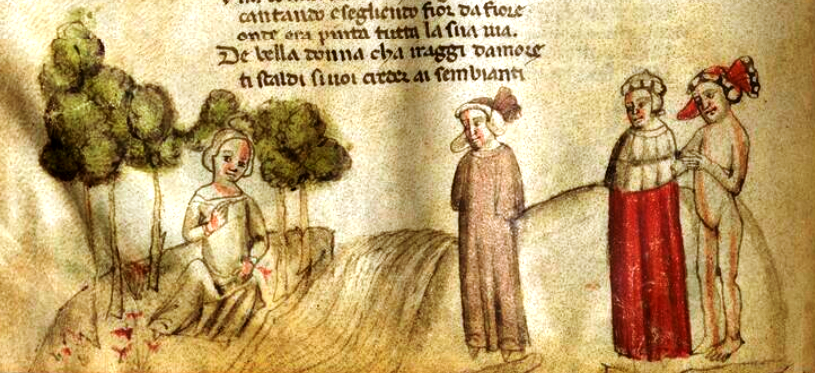 cantando e segliento fior da fiore
onte era pinta tutta la sua uia.
De bella donna cha iraggi damore
ti scaldi si uoi creder ai sembianti